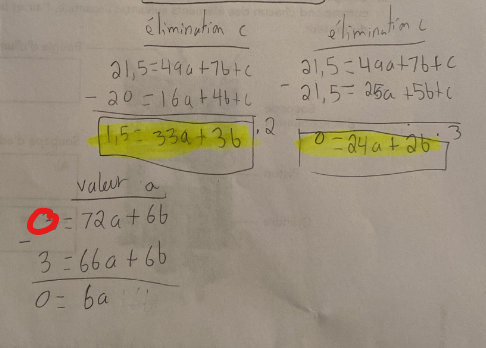 élimination c
21,5=49a+7b+c
- 20 = 16a+4b+c
1,5 = 33a+3b .2
élimination c
21,5=49a+7b+c
- 21,5= 25a +5b+c
0 = 24a + 2b .3
valeur a
= 72a + 6b
- 3 = 66a + 6b
0 = 6a